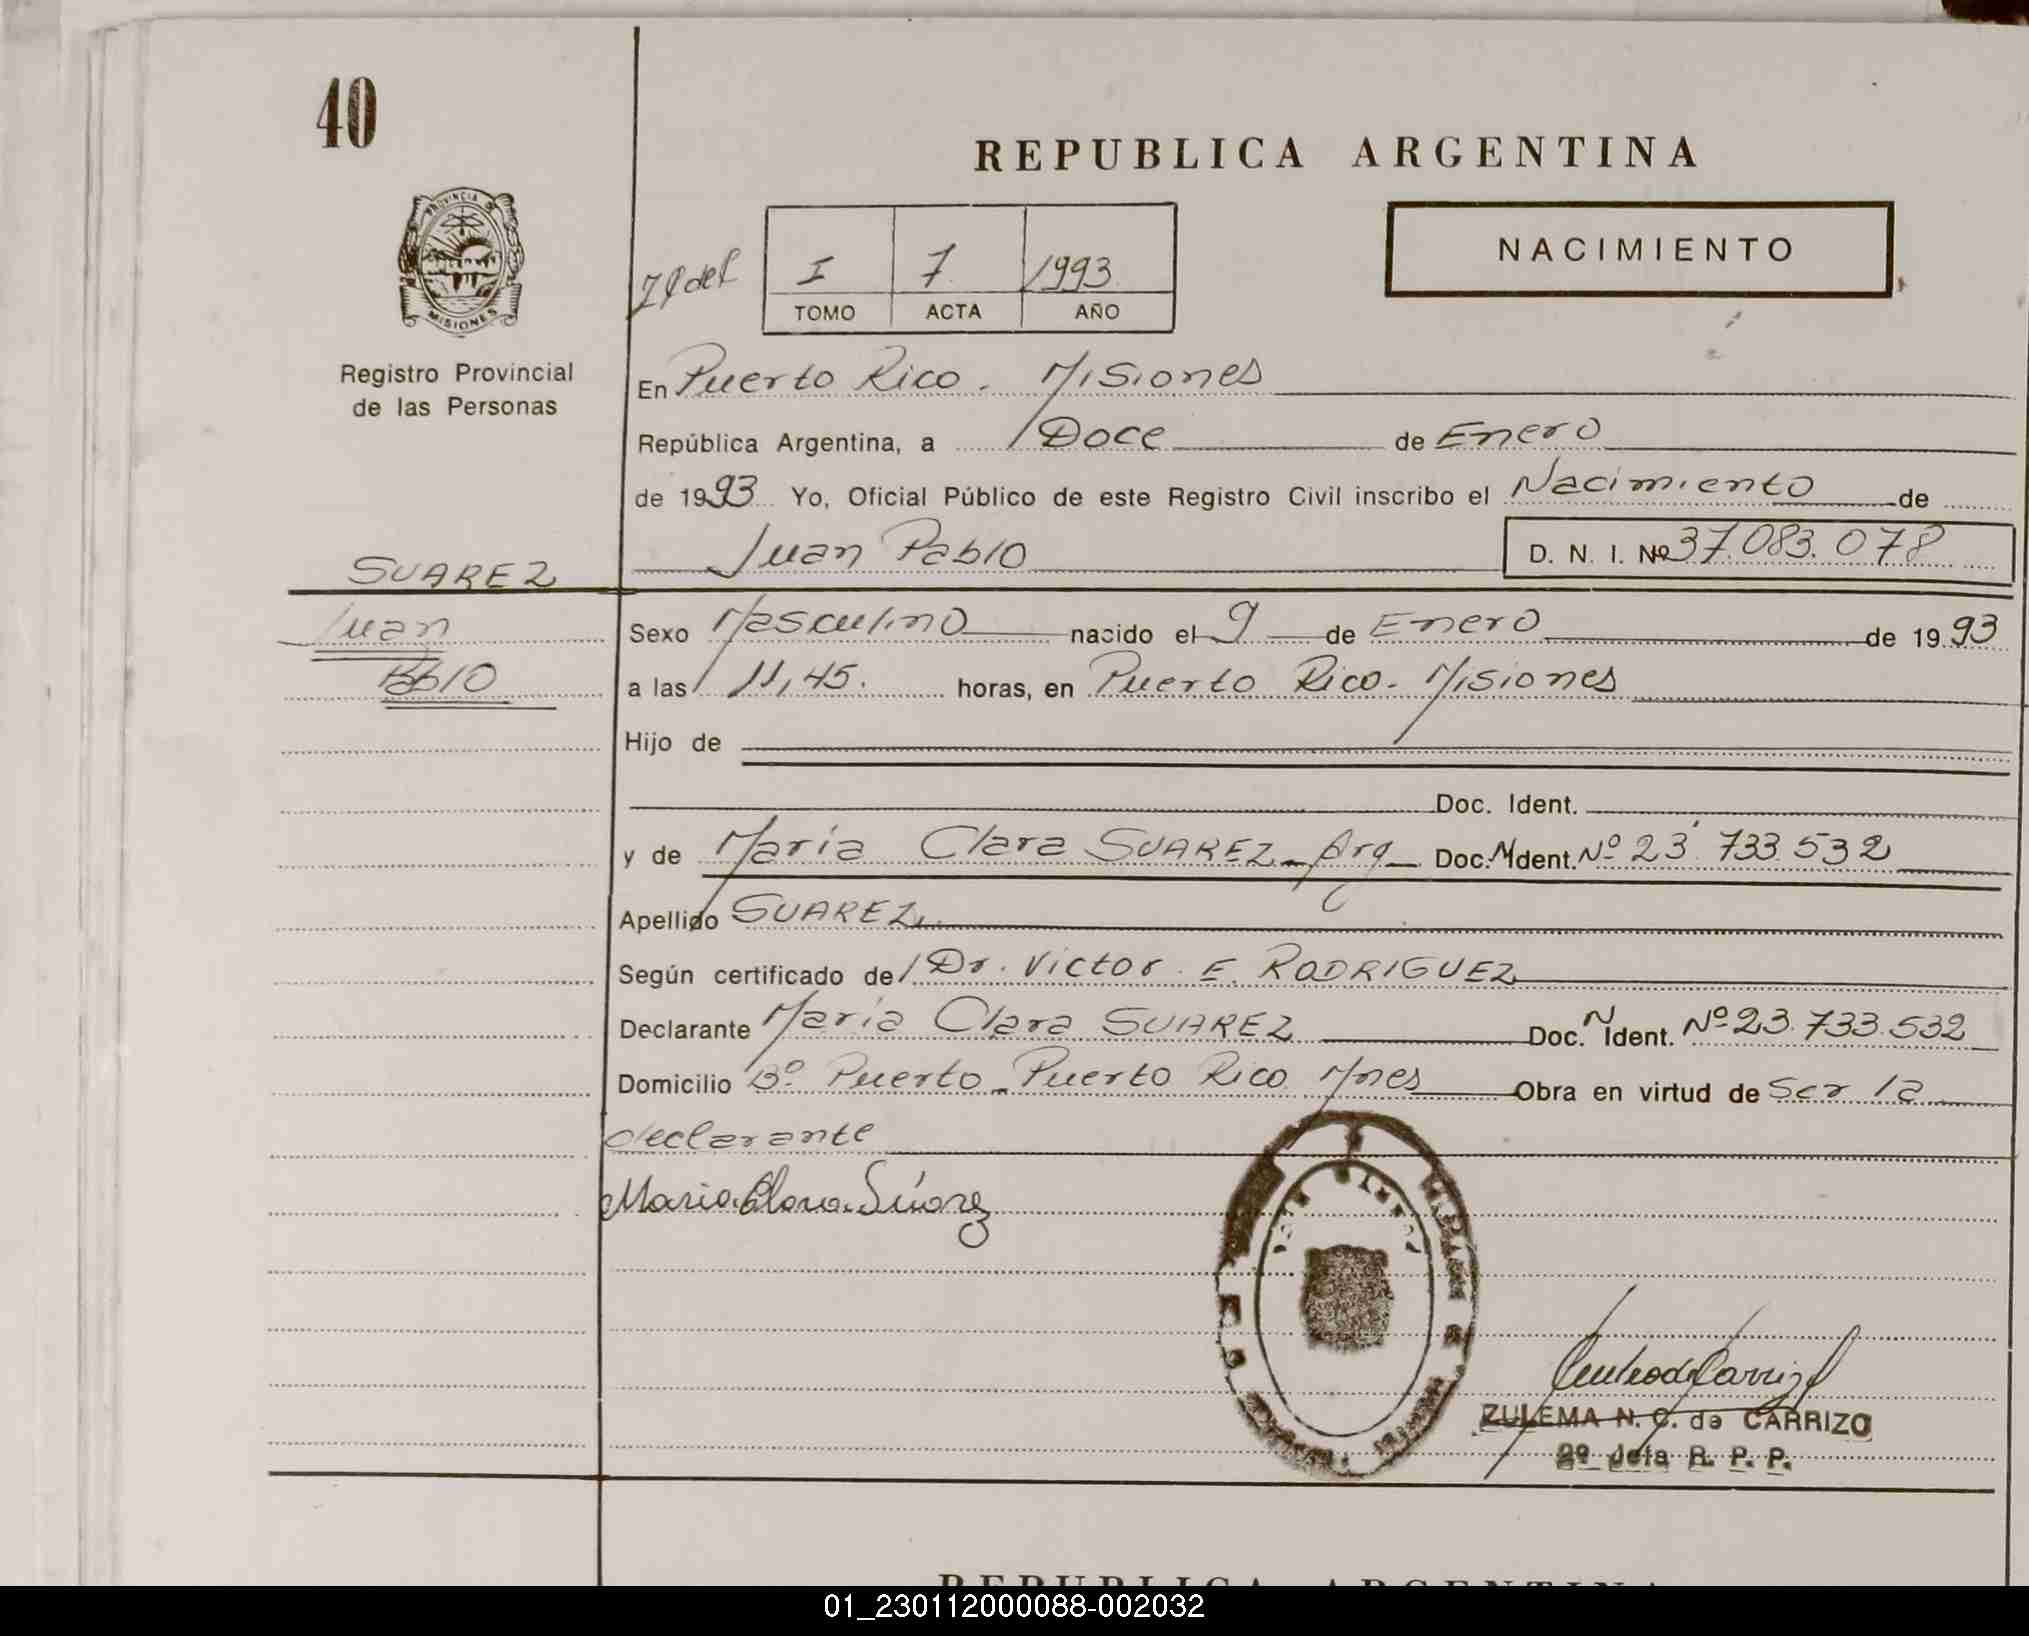 40
REPUBLICA ARGENTINA
NACIMIENTO
PROVINCIA DE
MISIONES
I 7 1993
TOMO ACTA AÑO
Registro Provincial
de las Personas
En Puerto Rico. Misiones
República Argentina, a Doce de Enero
de 1993 Yo, Oficial Público de este Registro Civil inscribo el Nacimiento de
Juan Pablo D. N. I. Nº 37.083.078
SUAREZ
Juan
Pablo
Sexo Masculino nacido el 9 de Enero de 1993
a las 11,45. horas, en Puerto Rico. Misiones
Hijo de
Doc. Ident.
y de Maria Clara SUAREZ - Arg Doc. N Ident. Nº 23.733.532
Apellido SUAREZ
Según certificado de Dr. Victor E. RODRIGUEZ
Declarante Maria Clara SUAREZ Doc. N Ident. Nº 23.733.532
Domicilio Bº Puerto - Puerto Rico Mnes Obra en virtud de Ser la
declarante
Maria Clara Súarez
ZULEMA N. C. de CARRIZO
2º Jefa R. P. P.
REPUBLICA ARGENTINA
01_230112000088-002032